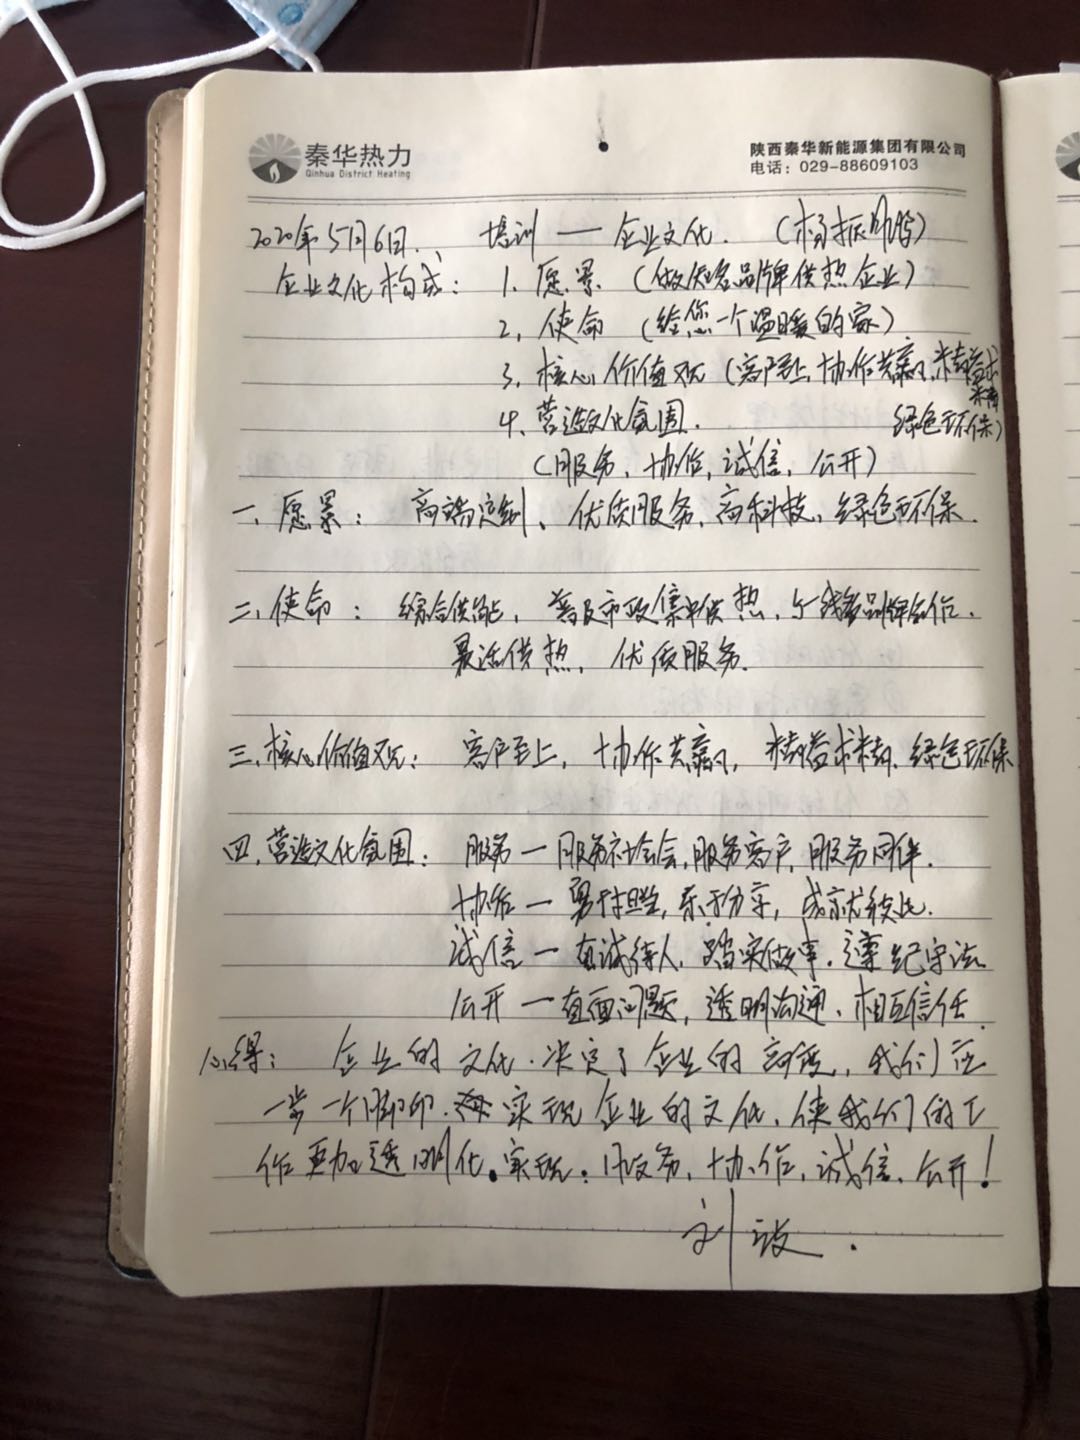 秦华热力
Qinhua District Heating
陕西秦华新能源集团有限公司
电话：029-88609103
2020年5月6日、 培训 — 企业文化. （杨振鹏）
企业文化构成： 1. 愿景（做知名品牌供热企业）
2. 使命（给您一个温暖的家）
3. 核心价值观（客户至上，协作共赢，精益求精
4. 营造文化氛围. 绿色环保）
（服务、协作，诚信，公开）
一、愿景： 高端定制、优质服务、高科技、绿色环保.
二、使命： 综合供能，普及市政集中供热，与知名品牌合作.
灵活供热，优质服务.
三、核心价值观： 客户至上，协作共赢，精益求精、绿色环保
四、营造文化氛围： 服务 — 服务社会，服务客户，服务同伴.
协作 — 勇于担当，乐于分享，成就彼此.
诚信 — 真诚待人，踏实做事，遵纪守法
公开 — 直面问题，透明沟通、相互信任.
心得： 企业的文化. 决定了企业的高度，我们应
一步一个脚印. 实现企业的文化，使我们的工
作更加透明化。实现：服务，协作，诚信、公开！
刘